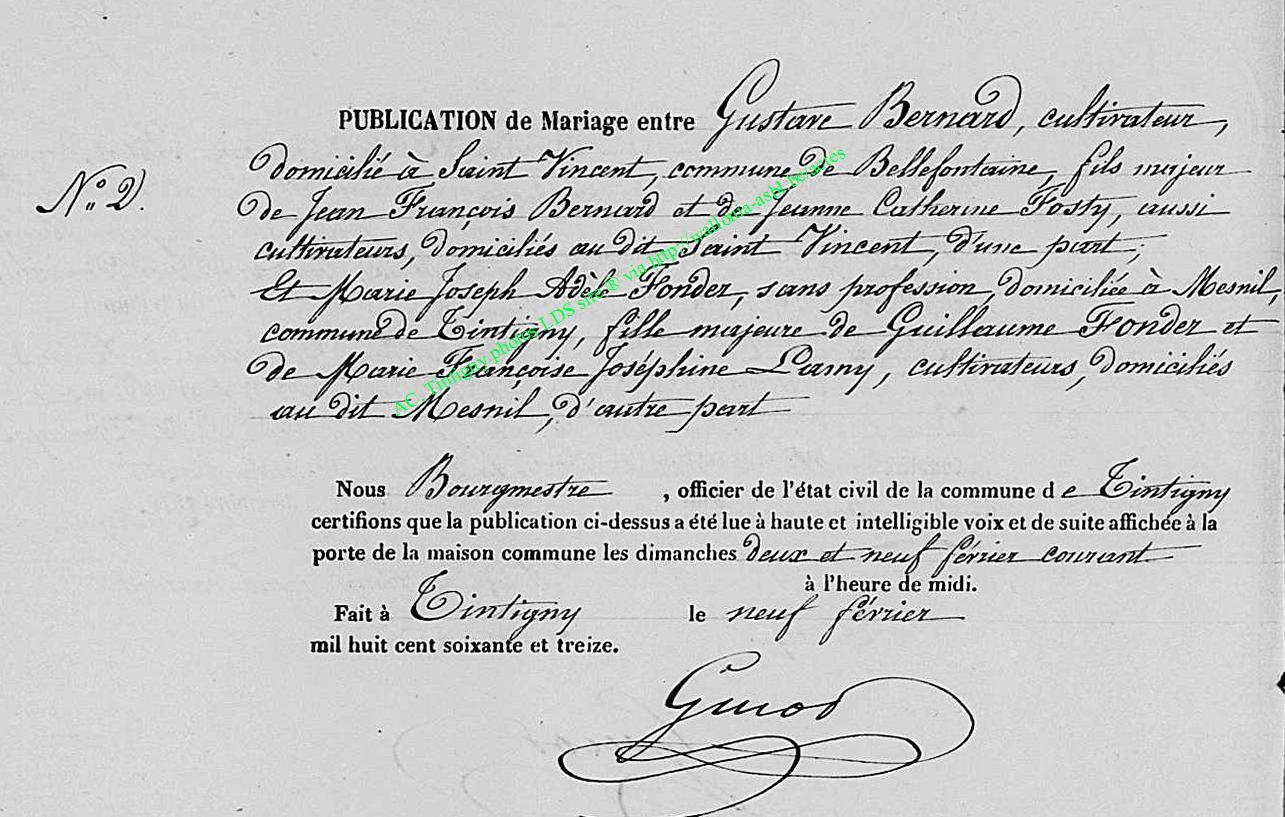 PUBLICATION de Mariage entre Gustave Bernard, cultivateur,
domicilié à Saint Vincent, commune de Bellefontaine, fils majeur
N.º 2.
de Jean François Bernard et de Jeanne Catherine Fosty, aussi
cultivateurs, domiciliés au dit Saint Vincent, d'une part;
Et Marie Joseph Adèle Fonder, sans profession, domiciliée à Mesnil,
commune de Tintigny, fille majeure de Guillaume Fonder et
de Marie Françoise Joséphine Lamy, cultivateurs, domiciliés
au dit Mesnil, d'autre part
AC. Tintigny photos LDS site & via http://wallonia-asbl.be/actes
Nous Bourgmestre , officier de l'état civil de la commune d e Tintigny
certifions que la publication ci-dessus a été lue à haute et intelligible voix et de suite affichée à la
porte de la maison commune les dimanches deux et neuf février courant
à l'heure de midi.
Fait à Tintigny le neuf février
mil huit cent soixante et treize.